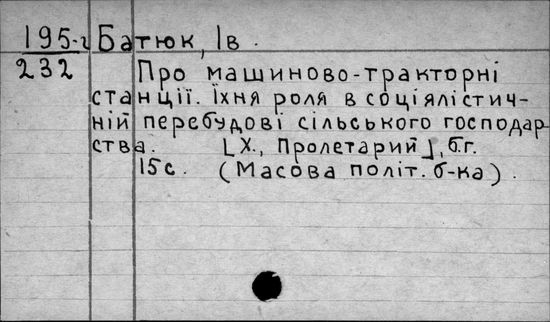 195-г Батюк, Ів.
232 Про машиново-тракторні
станції. Їхня роля в соціялістич-
ній перебудові сільського господар-
ства. [Х., Пролетарий], б.г.
15с. (Масова політ. б-ка).